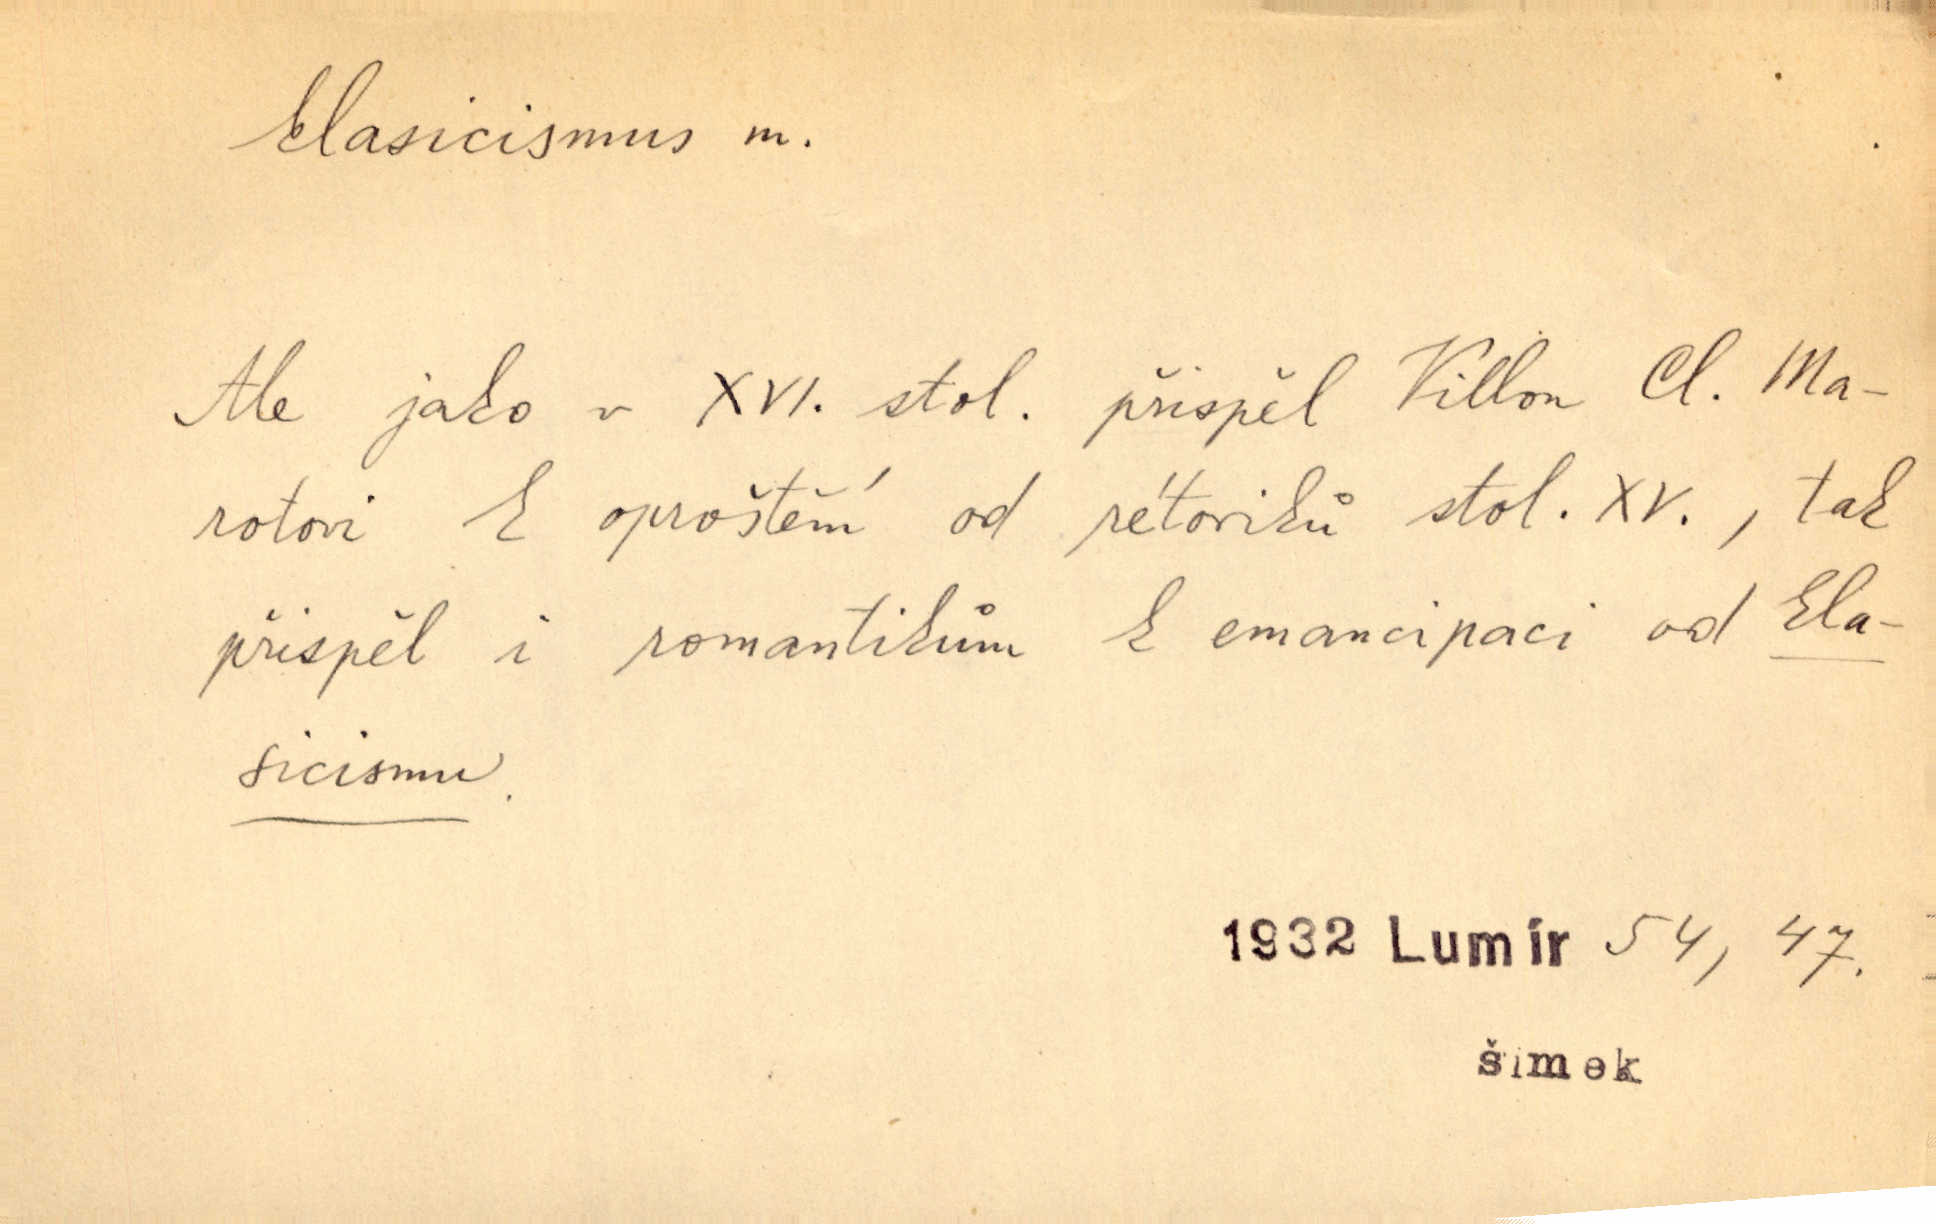 klasicismus m.
Ale jako v XVI. stol. přispěl Villon Cl. Ma-
rotovi k oproštění od rétoriků stol. XV., tak
přispěl i romantikům k emancipaci od kla-
sicismu.
1932 Lumír 54, 47.
šimek